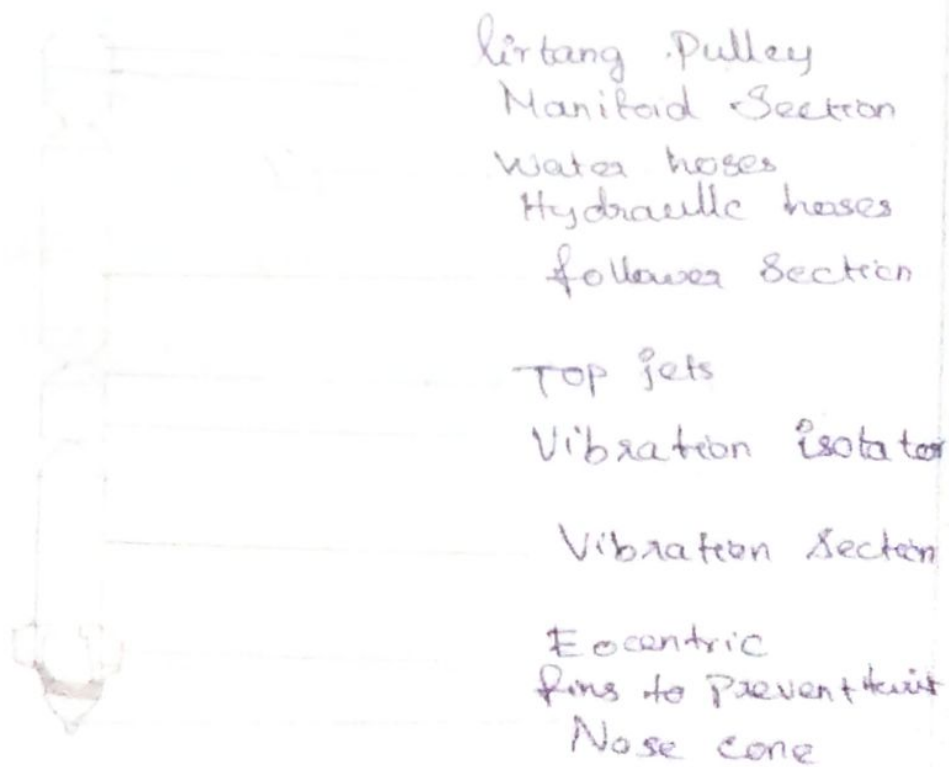 lirtang Pulley
Manifoid Section
Water hoses
Hydraullc hoses
follower Section
Top jets
Vibration isotator
Vibration Section
Eocentric
fins to Prevent twist
Nose cone